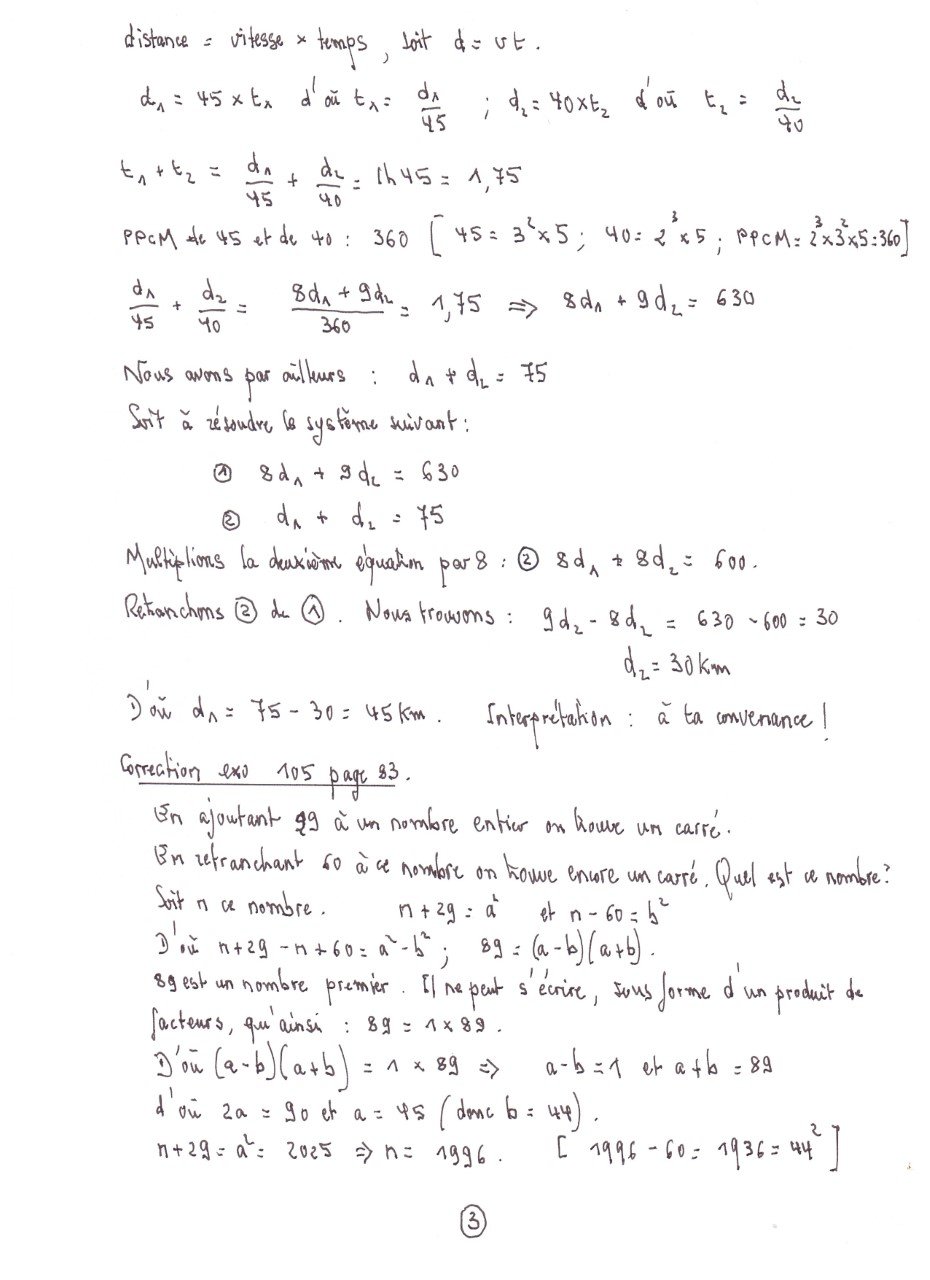 distance = vitesse × temps, soit d = vt.
d₁ = 45 × t₁ d'où t₁ = d₁/45 ; d₂ = 40×t₂ d'où t₂ = d₂/40
t₁ + t₂ = d₁/45 + d₂/40 = 1h45 = 1,75
PPCM de 45 et de 40 : 360 [ 45 = 3²×5 ; 40 = 2³×5 ; PPCM = 2³×3²×5=360]
d₁/45 + d₂/40 = (8d₁ + 9d₂)/360 = 1,75 ⇒ 8d₁ + 9d₂ = 630
Nous avons par ailleurs : d₁ + d₂ = 75
Soit à résoudre le système suivant :
① 8d₁ + 9d₂ = 630
② d₁ + d₂ = 75
Multiplions la deuxième équation par 8 : ② 8d₁ + 8d₂ = 600.
Retranchons ② de ①. Nous trouvons : 9d₂ - 8d₂ = 630 - 600 = 30
d₂ = 30 km
D'où d₁ = 75 - 30 = 45 km. Interprétation : à ta convenance !
Correction exo 105 page 83.
En ajoutant 29 à un nombre entier on trouve un carré.
En retranchant 60 à ce nombre on trouve encore un carré. Quel est ce nombre ?
Soit n ce nombre. n + 29 = a² et n - 60 = b²
D'où n + 29 - n + 60 = a² - b² ; 89 = (a-b)(a+b).
89 est un nombre premier. Il ne peut s'écrire, sous forme d'un produit de
facteurs, qu'ainsi : 89 = 1 × 89.
D'où (a-b)(a+b) = 1 × 89 ⇒ a-b = 1 et a+b = 89
d'où 2a = 90 et a = 45 (donc b = 44).
n + 29 = a² = 2025 ⇒ n = 1996. [ 1996 - 60 = 1936 = 44² ]
③